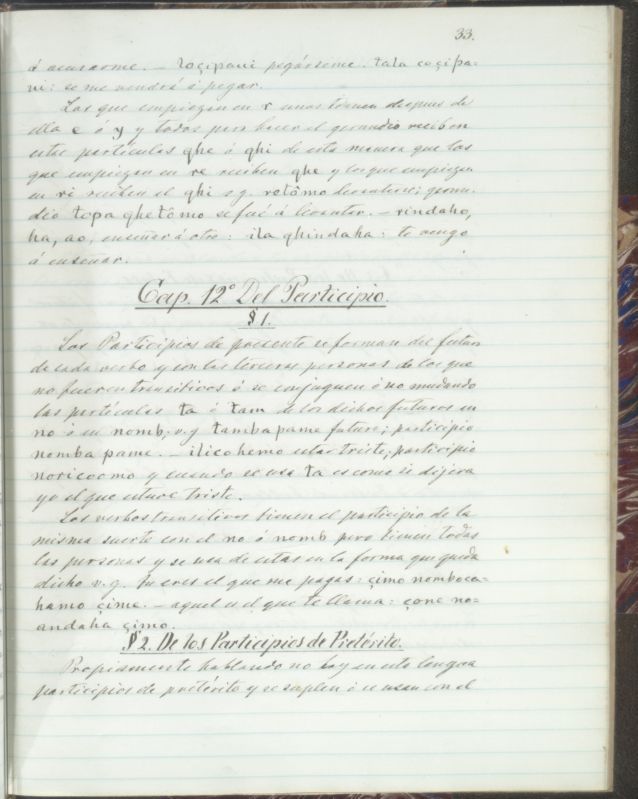 33.
á acusarme. — loçipaui pegárseme. tala coçipa=
ui: se me vendrá á pegar.
Los que empiezan en r unos tienen despues de
ella e ó y y todos para hacer el gerundio reciben
estas partículas ghe ó ghi de esta manera que los
que empiezan en re reciben ghe y los que empiezan
en ri reciben el ghi v.g. retômo levantar; gerun-
dio topa ghetômo se fué á levantar. — rindaho,
ha, ao, enseñar á otro: ila ghindaha: te vengo
á enseñar.
Cap. 12º Del Participio.
§ 1.
Los Participios de presente se forman del futuro
de cada verbo y con las terceras personas de los que
no fueren transitivos ó se conjuguen ó no mudando
las partículas ta ó tam de los dichos futuros en
no ó en nomb; v.g tambapame futuro; participio
nomba pame. — ilicohemo estar triste; participio
noricoomo y cuando se usa ta es como si dijera
yo el que estuve triste.
Los verbos transitivos tienen el participio de la
misma suerte con el no ó nomb pero tienen todas
las personas y se usa de estas en la forma que queda
dicho v.g. tu eres el que me pagas: çimo nomboca=
hamo çime. — aquel es el que te llama: çone no=
andaha çimo.
§ 2. De los Participios de Pretérito.
Propiamente hablando no hay en esta lengua
participios de pretérito y se suplen ó se usan con el